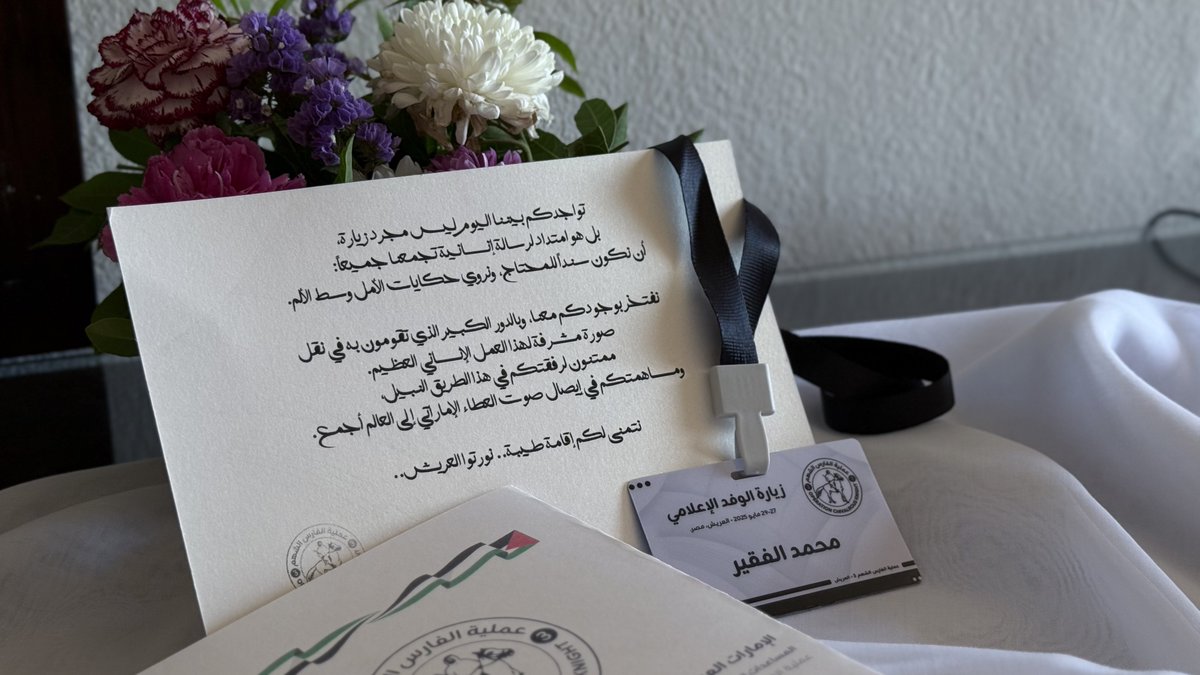 تواجدكم بيننا اليوم ليس مجرد زيارة،
بل هو امتداد لرسالة إنسانية تجمعنا جميعاً:
أن نكون سنداً للمحتاج، ونروي حكايات الأمل وسط الألم.
نفتخر بوجودكم معنا، وبالدور الكبير الذي تقومون به في نقل
صورة مشرفة لهذا العمل الإنساني العظيم.
ممتنون لرفقتكم في هذا الطريق النبيل،
ومساهمتكم في إيصال صوت العطاء الإماراتي إلى العالم أجمع.
نتمنى لكم إقامة طيبة.. نورتوا العريش..
عملية الفارس الشهم 3
عملية الفارس الشهم
OPERATION CHIVALROUS KNIGHT
زيارة الوفد الإعلامي
27-29 مايو 2025 - العريش، مصر
محمد الفقير
عملية الفارس الشهم 3 - العريش
عملية الفارس 3
KNIGHT
الإمارات
المساعدات
عملية